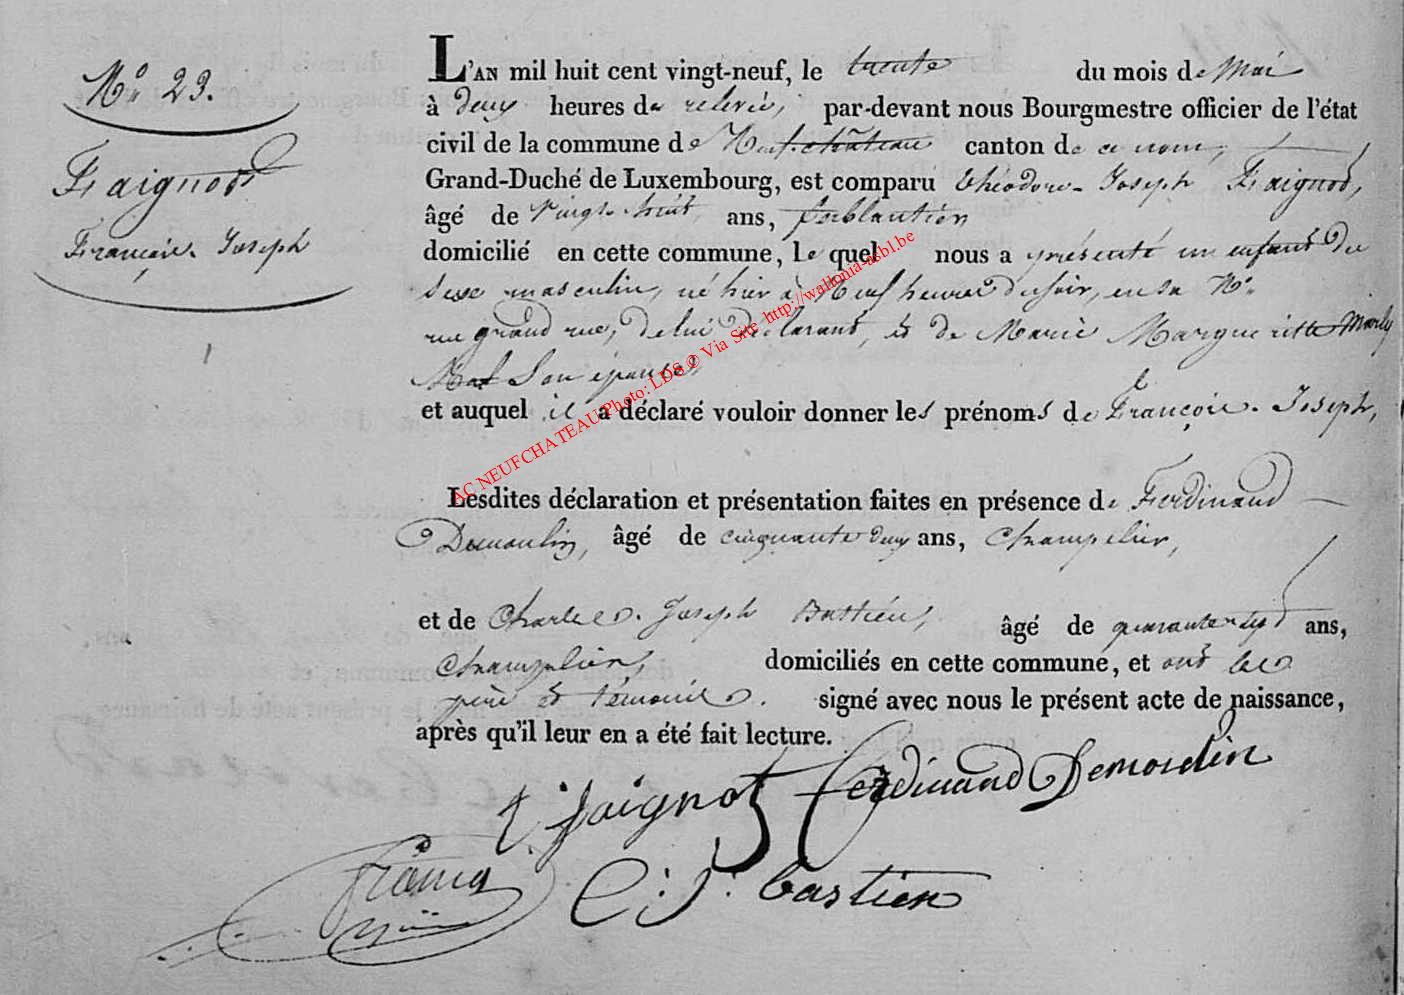 N° 23.
Faignot
François-Joseph
L'AN mil huit cent vingt-neuf, le trente du mois de Mai
à deux heures de relevée, par-devant nous Bourgmestre officier de l'état
civil de la commune de Neufchâteau canton de ce nom,
Grand-Duché de Luxembourg, est comparu théodore-Joseph Faignot,
âgé de vingt-huit ans, ferblantier
domicilié en cette commune, le quel nous a présenté un enfant du
sexe masculin, né hier à Neuf heures du soir, en sa N°
rue grand rue, de lui déclarant, et de Marie Marguerite
son épouse,
et auquel il a déclaré vouloir donner les prénoms de François-Joseph,
Lesdites déclaration et présentation faites en présence de Ferdinand
Demoulin, âgé de cinquante deux ans,
et de Charles-Joseph Bastien, âgé de quarante sept ans,
domiciliés en cette commune, et ont les
père et témoins signé avec nous le présent acte de naissance,
après qu'il leur en a été fait lecture.
t j faignot Ferdinand Demoulin
C: J: bastien
AC NEUFCHATEAU Photo: LDS © Via Site http://wallonia-asbl.be